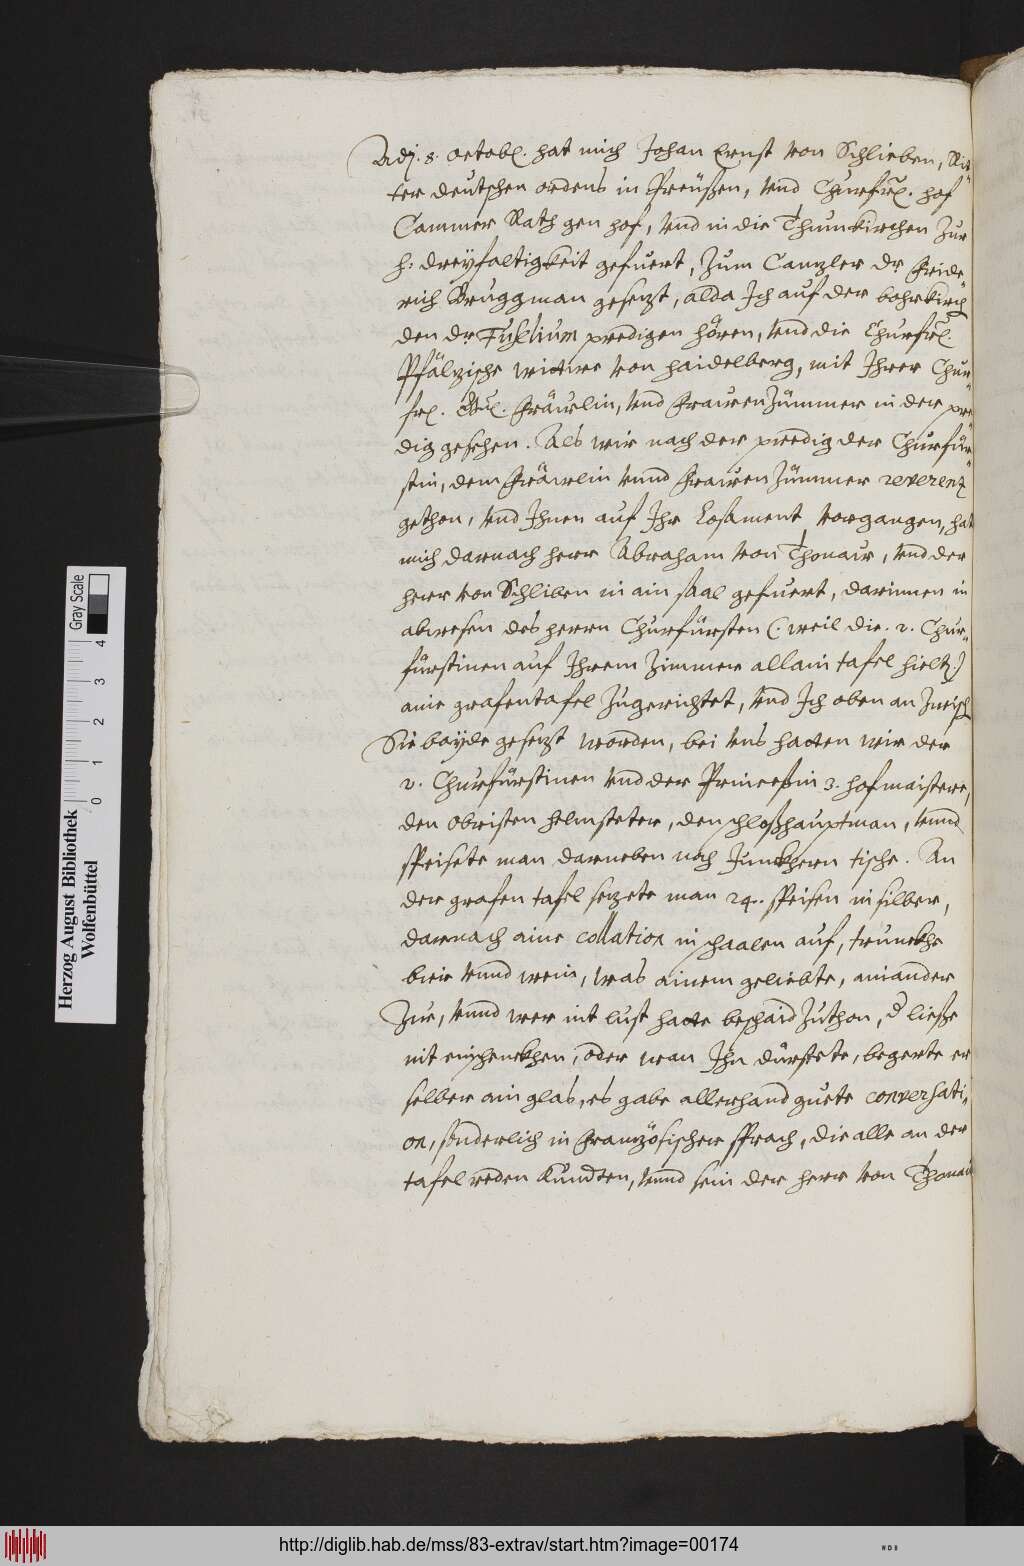 Adj. 8. octob. hat mich Johan Ernst von Schlieben, Rit-
ter deutschen ordens in Preüßen, vnd Churfrl. hof
Cammer Rath gen hof, vnd in die Thumkirchen zur
h: dreyfaltigkeit gefuert, zum Canzler dr Fride
rich Bruggman gesezt, alda Ich auf der bohrkirch
den dr predigen hören, vnd die Churfrl.
Pfälzische witwe von Haidelberg, mit Ihrer Chur-
frl. Fräwlin, vnd Frawenzümmer in der pre-
dig gesehen. Als wir nach der predig der Churfür-
stin, dem Fräwlin vnnd Frawenzümmer reverentz
gethon, vnd Ihnen auf Ihr Losament vorgangen, hat
mich darnach herr Abraham von Thonaw, vnd der
herr von Schliben in ain saal gefuert, darinnen in
abwesen des herrn Churfürsten (: weil die .2. Chur-
fürstinen auf Ihrem zimmer allain tafel hielt:)
aine grafentafel zugerichtet, vnd Ich oben an zwisch
Sie bayde gesezt worden, bei vns hatten wir der
2. Churfürstinen vnd der Princeßin 3. hofmaistere,
den obristen helmsteter, den schloßhauptman, vnnd
speisete man darneben noch Junckhern tische. An
der grafen tafel sezete man 24.. speisen in silber,
darnach aine collation in schaalen auf, trunckhe
bier vnnd wein, was ainem geliebte, ainander
zue, vnnd wer nit lust hatte beschaid zuthon, d ließe
nit einschenckhen, oder wan Ihn dürstete, begerte er
selber ain glas, es gabe allerhand guete conversati-
on, sonderlich in Französischer sprach, die alle an der
tafel reden kundten, vnnd sein der herr von Thonaw
Herzog August Bibliothek
Wolfenbüttel
0 1 2 3 4
Gray Scale
http://diglib.hab.de/mss/83-extrav/start.htm?image=00174